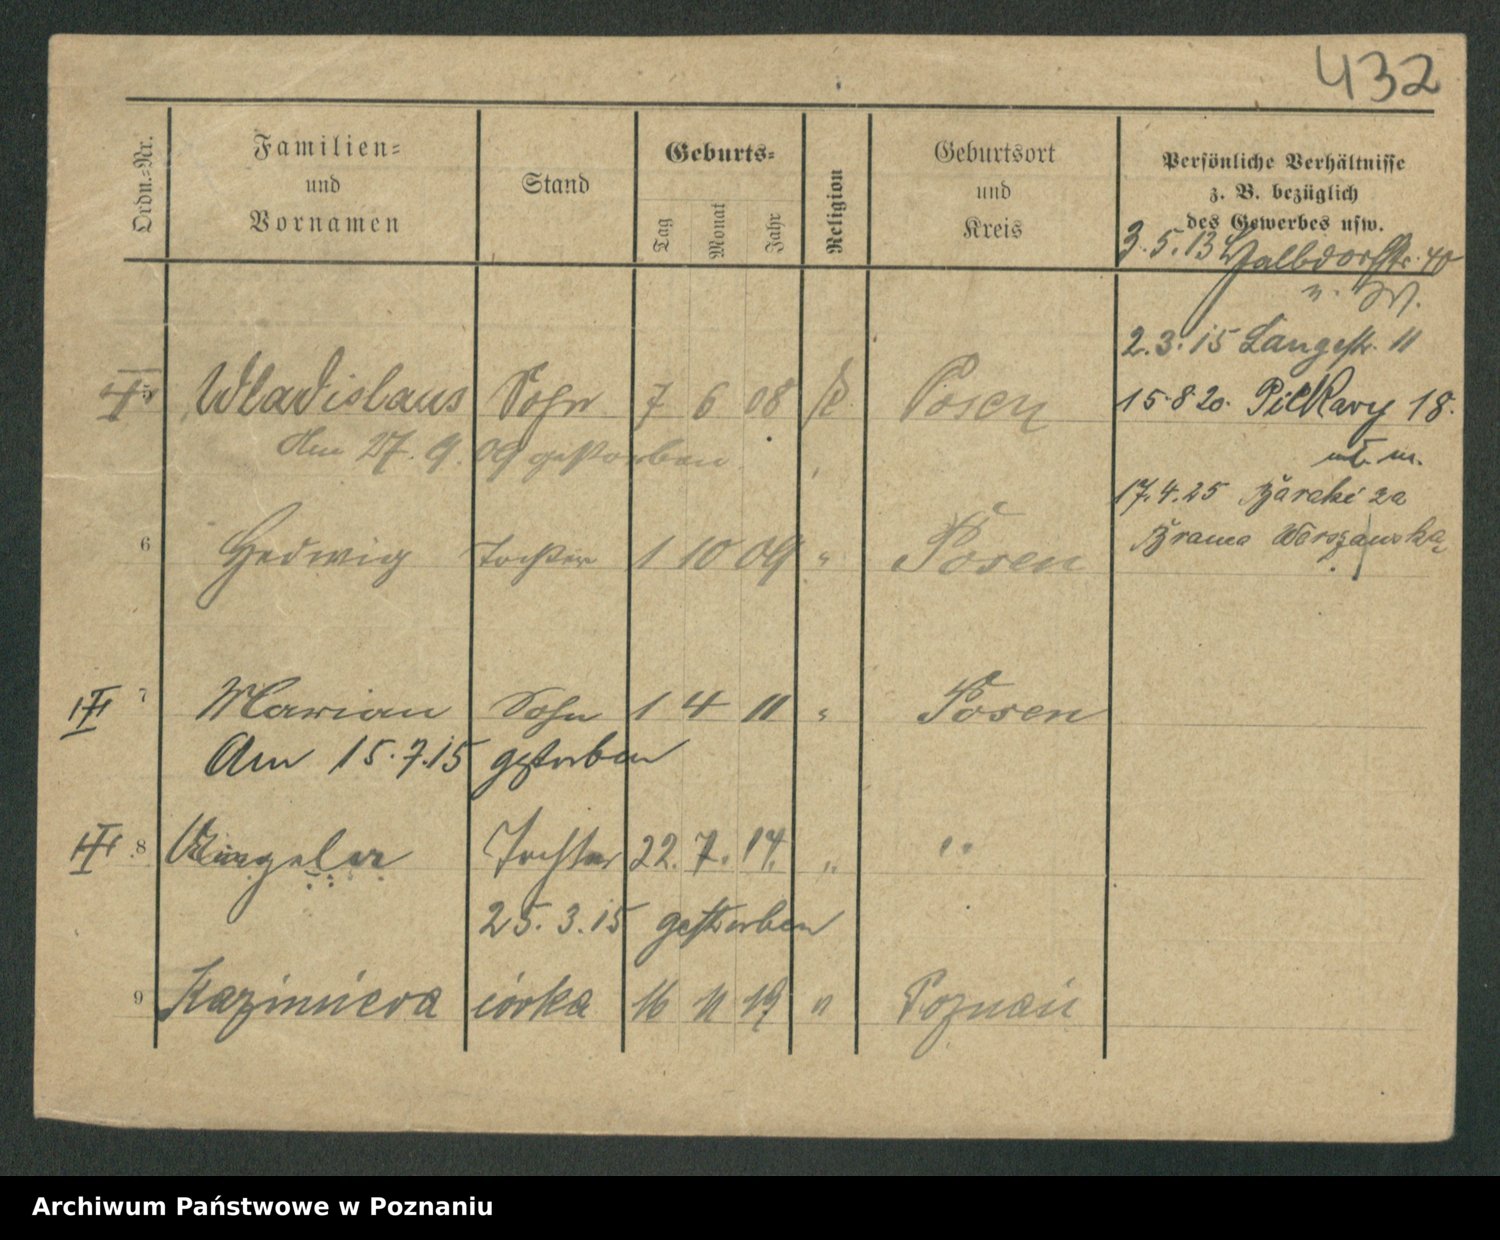 432
Ordn.-Nr.
Familien-
und
Vornamen
Stand
Geburts-
Tag
Monat
Jahr
Religion
Geburtsort
und
Kreis
Persönliche Verhältnisse
z. B. bezüglich
des Gewerbes usw.
3.5.13 Walbdorfstr. 40
2.3.15 Langestr. 11
5 Wladislaus Sohn 7 6 08 k Posen
15 8 20. Piekary 18.
Am 27. 9. 09 gestorben
17.4.25 Baraki za
Bramą Warszawską
6 Hedwig Tochter 1 10 09 " Posen
7 Marian Sohn 1 4 11 " Posen
Am 15.7.15 gestorben
8 Angela Tochter 22. 7. 14. " "
25.3.15 gestorben
9 Kazimiera córka 16 11 19 " Poznań
Archiwum Państwowe w Poznaniu